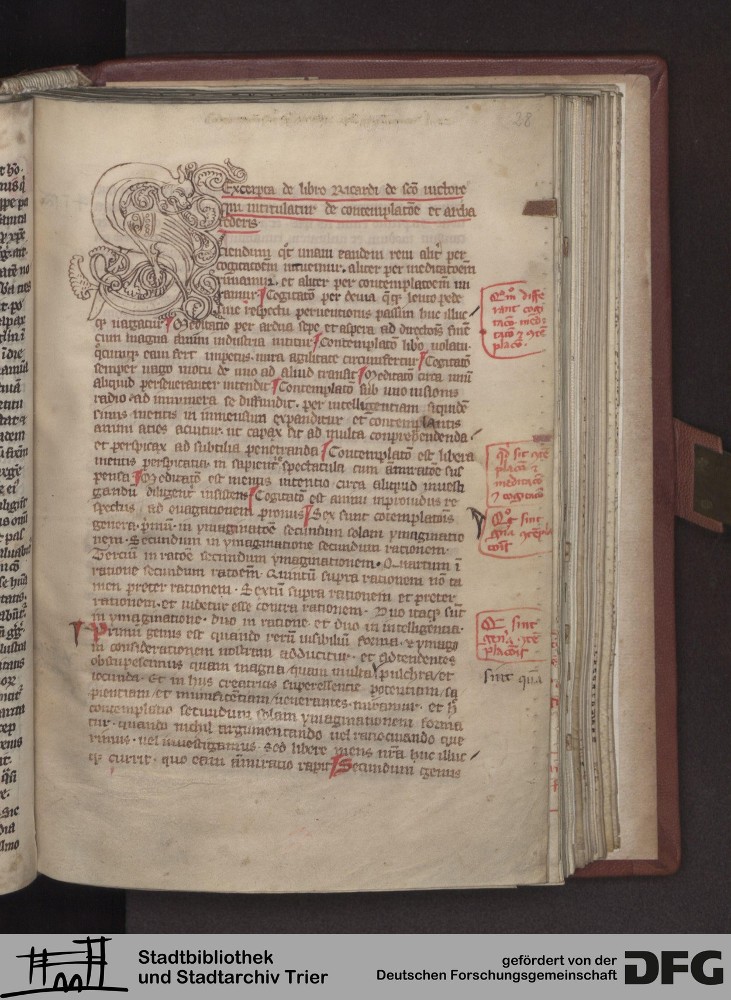 28
Excerpta de libro Ricardi de sco uictore
qui intitulatur de contemplatoe et archa
federis.
Sciendum qt unam eandem rem alit per
cogitatoem intuemur. aliter per meditatoem
rimamur. et aliter per contemplatoem mi
ramur. Cogitato per deuia qq lento pede
sine respectu peruentionis passim huc illuc
q uagatur. Meditatio per ardua sepe et aspera ad directois fine
cum magna animi industria nititur. Contemplato libo uolatu
qcumq eam fert impetus mira agilitate circumfertur. Cogitato
semper uago motu de uno ad aliud transit. Meditato circa unu
aliquid perseueranter intendit. Contemplato sub uno uisionis
radio ad innumera se diffundit. per intelligentiam siquide
sinus mentis in inmensum expanditur. et contemplantis
animi acies acuitur. ut capax sit ad multa conprehendenda.
et perspicax ad subtilia penetranda. Contemplato est libera
mentis perspicatia. in sapientie spectacula cum amiratoe sus
pensa. Meditato est mentis intentio circa aliquid inuesti
gandu diligent insistens. Cogitato est animi inprouidus re
spectus. ad euagationem pronus. Sex sunt cotemplatois
genera. primu in ymaginatoe secundum solam ymaginatio
nem. Secundum in ymaginatione secundum rationem.
Tercium in ratoe secundum ymaginationem. Quartum i
ratione secundum ratoem. Quintu supra rationem no ta
men preter rationem. Sextu supra rationem et preter
rationem. et uidetur esse contra rationem. Duo itaq sut
in ymaginatione. duo in ratione et duo in intelligentia.
Primu genus est quando reru uisibiliu forma. et ymago
in considerationem nostram adducitur. et adtendentes
obstupescimus quam magna quam multa pulchra et
iocunda. Et in his creatricis superessentie potentiam sa
pientiam et munificentiam uenerantes miramur. et h
contemplatio secundum solam ymaginationem forma
tur. quando nichil argumentando uel ratiocinando que
rimus. uel inuestigamus. sed libere mens nra huc illuc
q currit. quo eam amiratio rapit. Secundum genus
Qm diffe
rant cogi
taco. medi
taco et cote
placo.
qd sit cote
placo et
meditaco
et cogitaco
Qt sint
gna cotepla
cois
Qt sint
gna cote
placois
sint qua
Stadtbibliothek
und Stadtarchiv Trier
gefördert von der
Deutschen Forschungsgemeinschaft
DFG